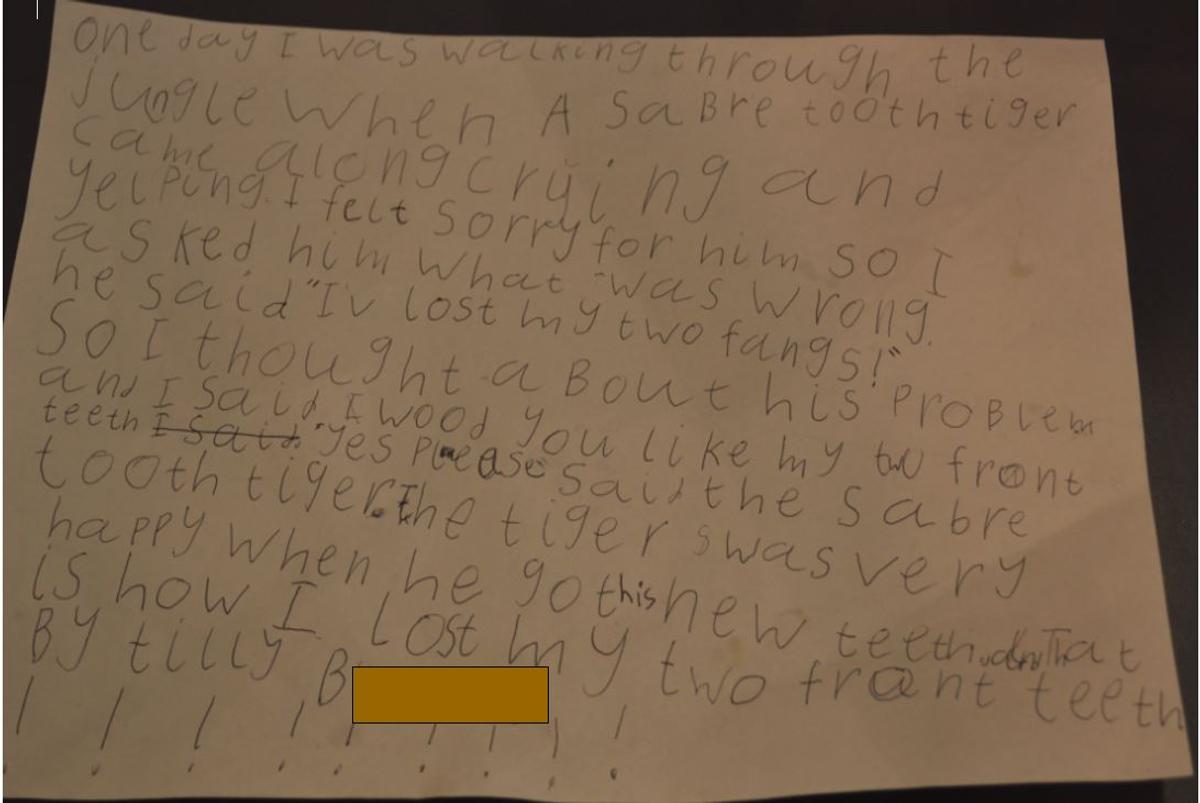 One day I was walking through the
jungle When A SaBre tooth tiger
came along crying and
yelping. I felt sorry for him so I
asked him what was wrong.
he said "I'v lost my two fangs!"
So I thought aBout his ProBlem
and I said, I wood you like my two front
teeth I said "yes Please said the sabre
tooth tiger. The tiger swas very
happy when he got his new teeth. That
is how I lost my two front teeth
By tilly B
! ! ! ! ! ! ! ! !